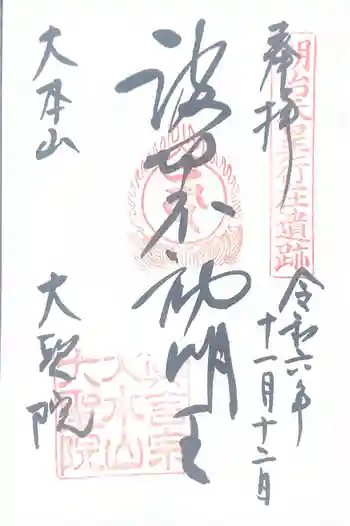 明治天皇行在遺跡
奉拝
令和六年
十一月十二日
波切不動明王
大本山
大聖院
真言宗
大本山
大聖院